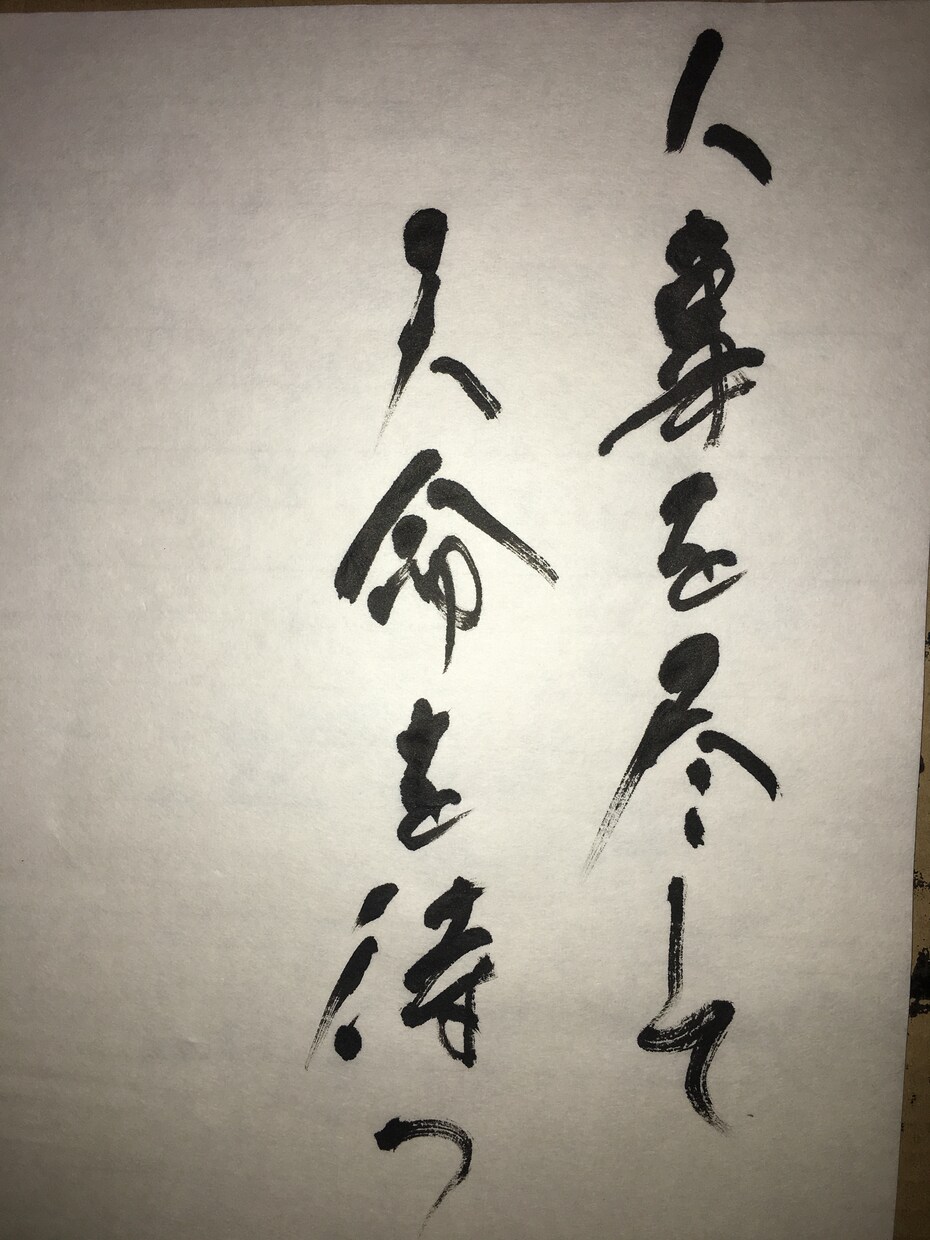 人事を尽して
天命を待つ